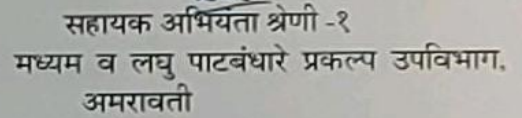 सहायक अभियंता श्रेणी -१
मध्यम व लघु पाटबंधारे प्रकल्प उपविभाग.
अमरावती